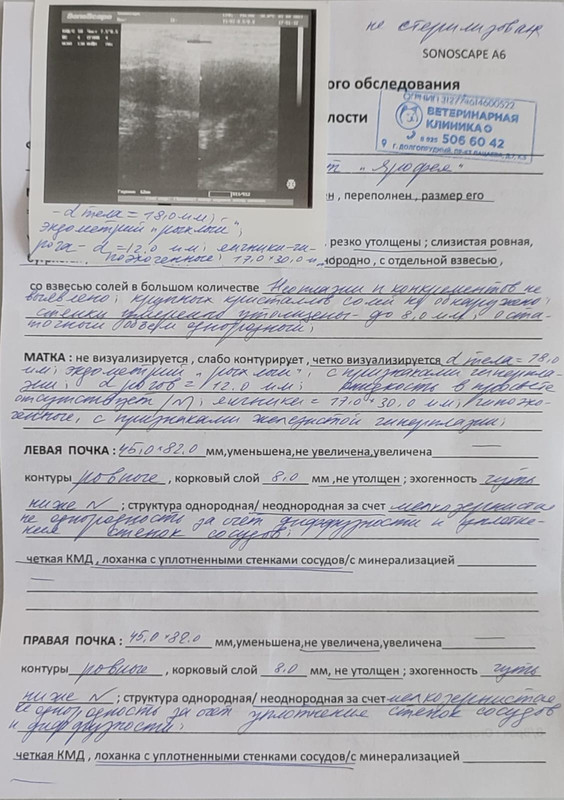 SonoScape
не стерилизован
SONOSCAPE A6
ого обследования
ОГРНИП 312774614600522
ВЕТЕРИНАРНАЯ
КЛИНИКА
8 925 506 60 42
Г. ДОЛГОПРУДНЫЙ
лости
н , переполнен , размер его
- d тела = 18,0 мм;
эндометрий "рыхлый";
рога - d=12,0 мм; яичники-ги-
поэхогенные; 17,0×30,0 м
, резко утолщены ; слизистая ровная,
нородно , с отдельной взвесью ,
со взвесью солей в большом количестве Неоплазии и конкрементов не
выявлено; крупных кристаллов солей не обнаружено;
стенки умеренно утолщены - до 8,0 мм; оста-
точный объем однородный;
МАТКА : не визуализируется , слабо контурирует , четко визуализируется d тела = 18,0
мм; эндометрий "рыхлый"; с признаками гиперпла-
зии; d рогов = 12,0 мм; жидкость в просвете
отсутствует /N/; яичники = 17,0×30,0 мм; гипоэхо-
генные, с признаками железистой гиперплазии;
ЛЕВАЯ ПОЧКА : 45,0×82,0 мм,уменьшена,не увеличена,увеличена
контуры ровные , корковый слой 8,0 мм ,не утолщен ; эхогенность чуть
ниже N ; структура однородная/ неоднородная за счет мелкозернистая
неоднородность за счет диффузности и уплотне-
ния стенок сосудов;
четкая КМД , лоханка с уплотненными стенками сосудов/с минерализацией
ПРАВАЯ ПОЧКА : 45,0×82,0 мм,уменьшена,не увеличена,увеличена
контуры ровные , корковый слой 8,0 мм, не утолщен ; эхогенность чуть
ниже N ; структура однородная/ неоднородная за счет мелкозернистая
неоднородность за счет уплотнение стенок сосудов
и диффузности;
четкая КМД , лоханка с уплотненными стенками сосудов/с минерализацией